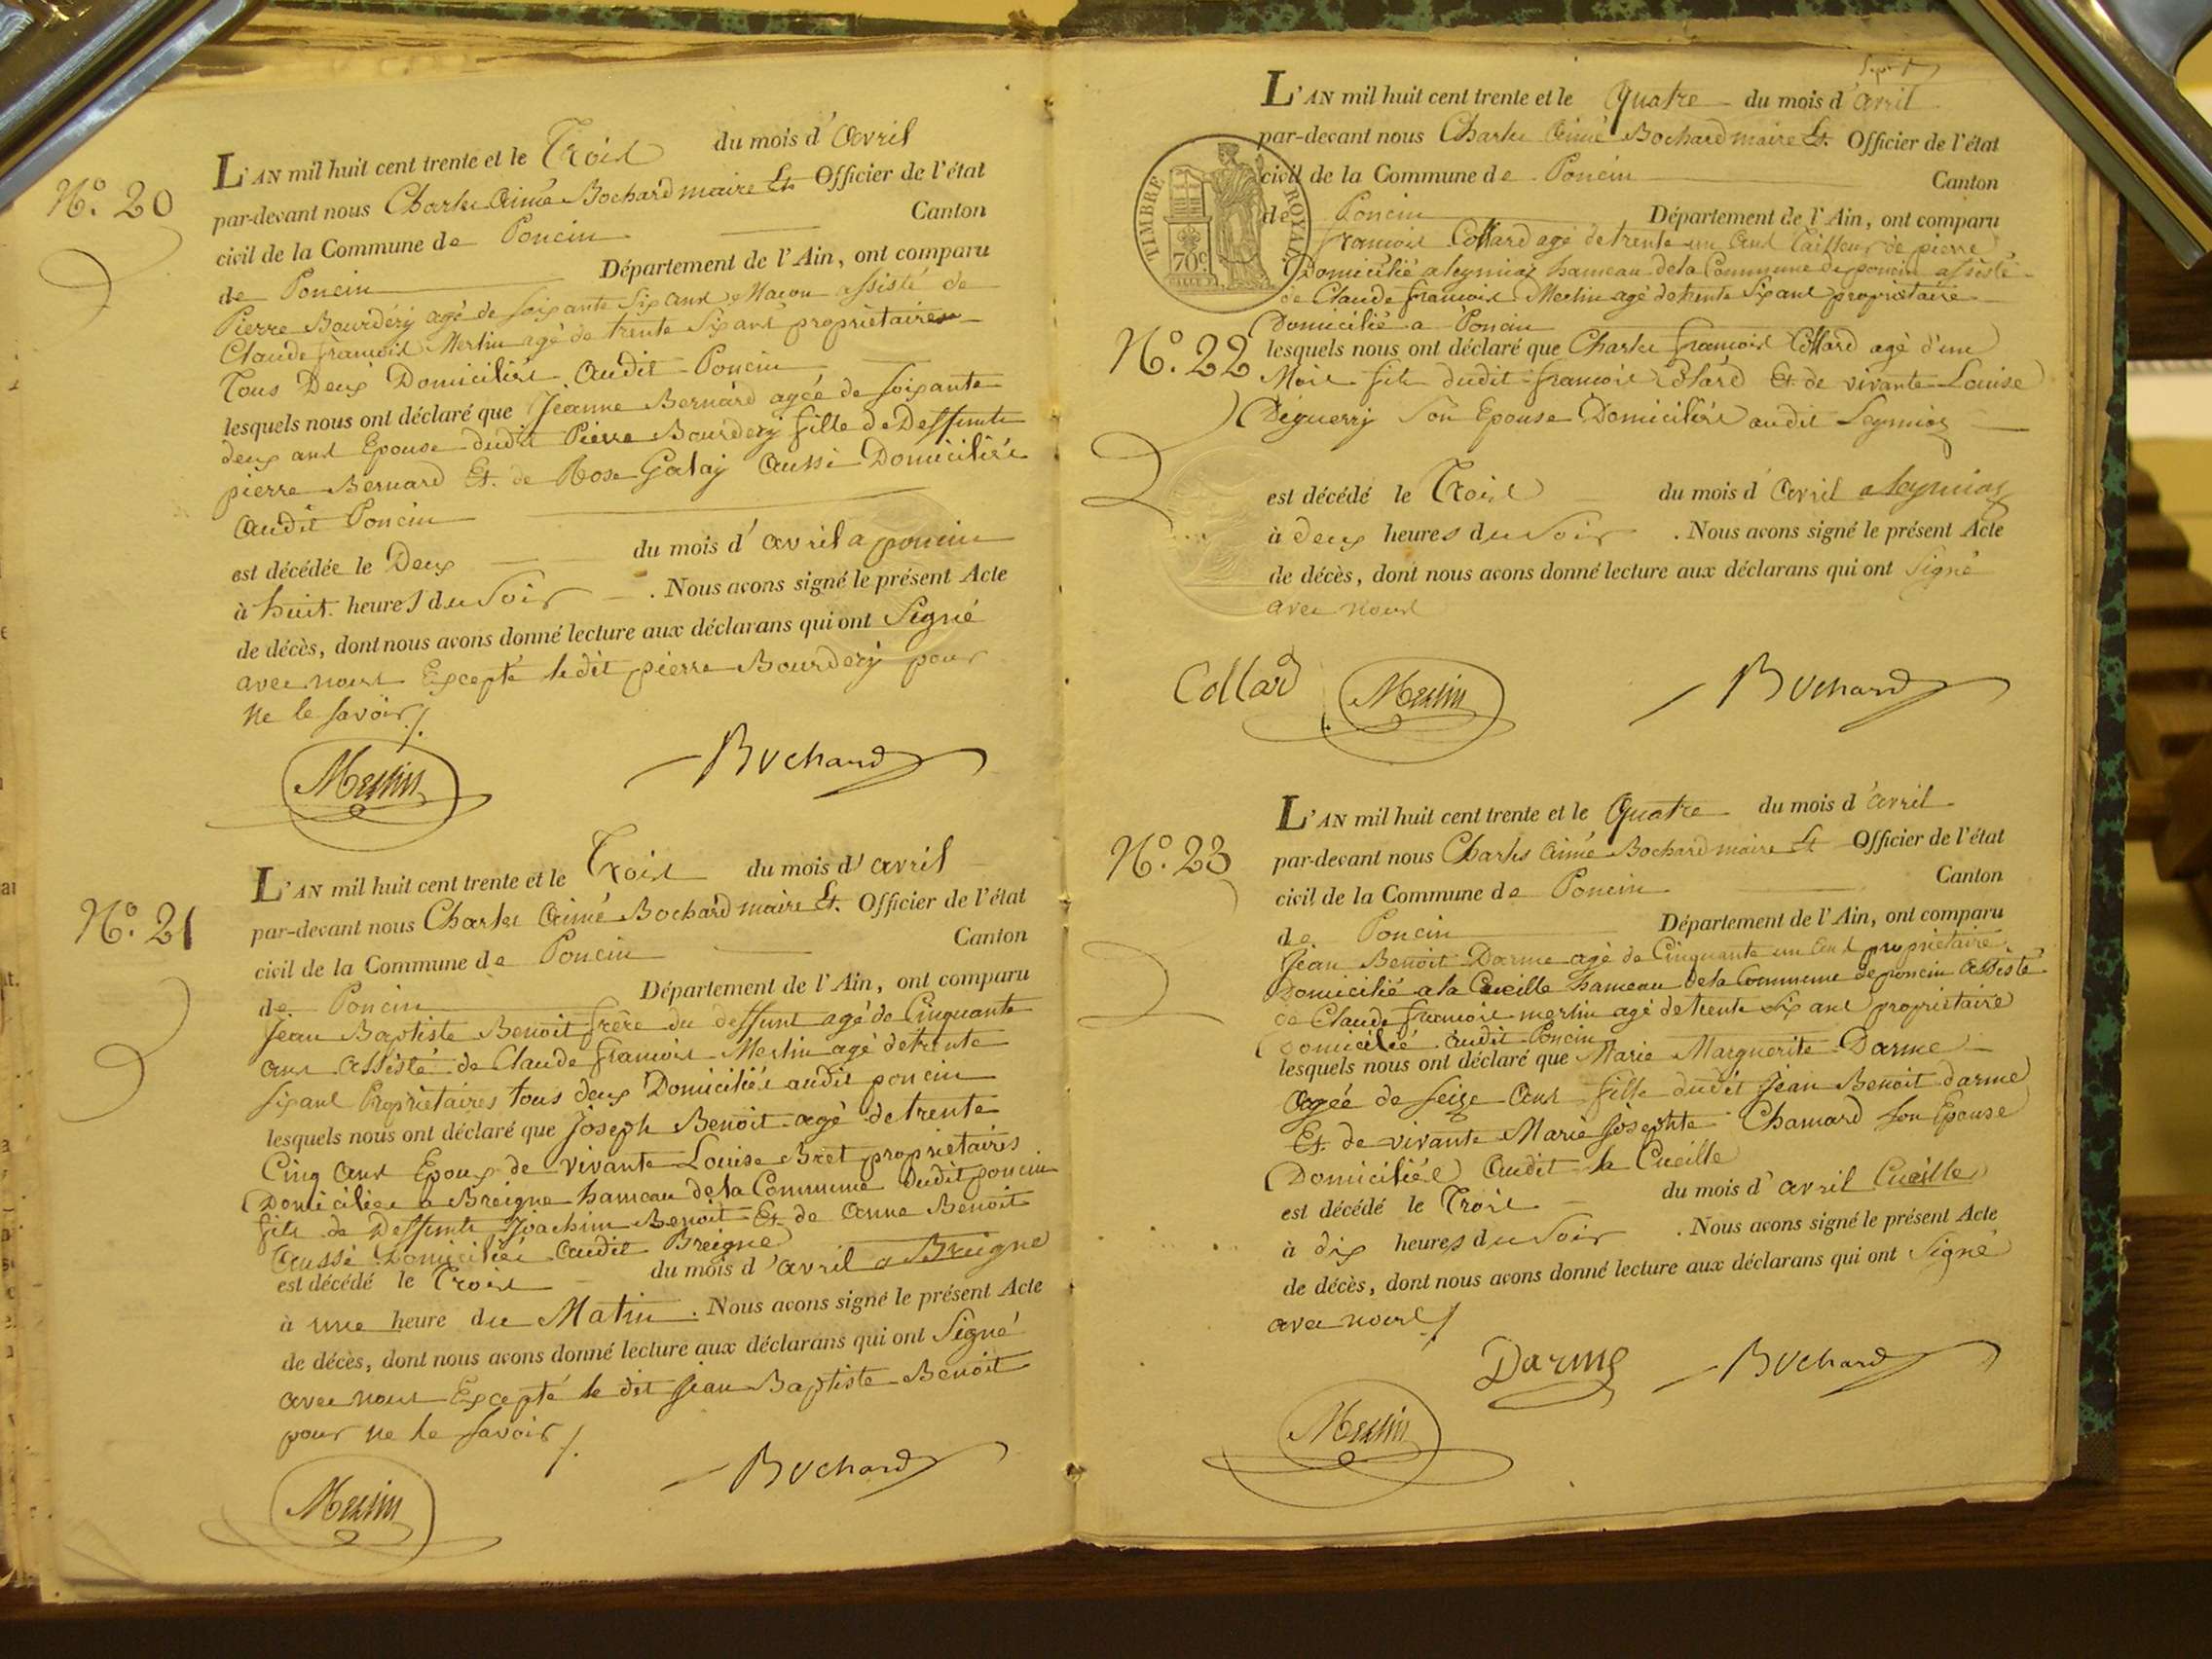 N°. 20
L'AN mil huit cent trente et le Trois du mois d'avril
par-devant nous Charles Aimé Bochard maire Et Officier de l'état
civil de la Commune de Poncin Canton
de Poncin Département de l'Ain, ont comparu
Pierre Bourdery agé de soixante six ans Macon assisté de
Claude françois Merlin agé de trente six ans propriétaires
Tous Deux Domiciliés Audit Poncin
lesquels nous ont déclaré que Jeanne Bernard agée de soixante
deux ans Epouse dudit Pierre Bourdery fille de Deffunts
pierre Bernard Et de Rose Galay Aussi Domiciliée
Audit Poncin
est décédée le Deux du mois d'avril a poncin
à huit heures du Soir. Nous avons signé le présent Acte
de décès, dont nous avons donné lecture aux déclarans qui ont Signé
avec nous Excepté le dit pierre Bourdery pour
Ne le savoir ./.
Merlin
Bochard
N°. 21
L'AN mil huit cent trente et le Trois du mois d'avril
par-devant nous Charles Aimé Bochard maire Et. Officier de l'état
civil de la Commune de Poncin Canton
de Poncin Département de l'Ain, ont comparu
Jean Baptiste Benoit frère du deffunt agé de Cinquante
ans Assisté de Claude françois Merlin agé de trente
six ans Propriétaires tous deux Domiciliés audit poncin
lesquels nous ont déclaré que Joseph Benoit agé de trente
Cinq ans Epoux de vivante Louise Bret propriétaires
Domiciliés a Breigne hameau de la Commune dudit poncin
fils de Deffunts Joachim Benoit Et de Anne Benoit
Aussi Domiciliés audit Breigne
est décédé le Trois du mois d'avril a Breigne
à une heure du Matin. Nous avons signé le présent Acte
de décès, dont nous avons donné lecture aux déclarans qui ont Signé
avec nous Excepté le dit Jean Baptiste Benoit
pour ne le savoir ./.
Merlin
Bochard
L'AN mil huit cent trente et le Quatre du mois d'avril
par-devant nous Charles Aimé Bochard maire Et. Officier de l'état
civil de la Commune de Poncin Canton
de Poncin Département de l'Ain, ont comparu
TIMBRE ROYAL
70c.
françois Collard agé de trente un ans tailleur de pierre
Domicilié a leymiaz hameau de la Commune de poncin assisté
de Claude françois Merlin agé de trente six ans propriétaire
Domicilié a Poncin
N°. 22
lesquels nous ont déclaré que Charles françois Collard agé d'un
Mois fils dudit françois Collard Et de vivante Louise
Déguerry son Epouse Domiciliés audit Leymiaz
est décédé le Trois du mois d'avril a leymiaz
à deux heures du Soir. Nous avons signé le présent Acte
de décès, dont nous avons donné lecture aux déclarans qui ont Signé
avec nous
Collard
Merlin
Bochard
N°. 23
L'AN mil huit cent trente et le Quatre du mois d'avril
par-devant nous Charles Aimé Bochard maire Et Officier de l'état
civil de la Commune de Poncin Canton
de Poncin Département de l'Ain, ont comparu
Jean Benoit Darme agé de Cinquante un ans propriétaire
Domicilié a la Cueille hameau de la Commune de poncin assisté
de Claude françois merlin agé de trente six ans propriétaire
Domicilié audit Poncin
lesquels nous ont déclaré que Marie Marguerite Darme
Agée de seize ans fille dudit Jean Benoit darme
Et. de vivante Marie Josephte Chamard son Epouse
Domiciliée Audit la Cueille
est décédé le Trois du mois d'avril Cueille
à dix heures du Soir. Nous avons signé le présent Acte
de décès, dont nous avons donné lecture aux déclarans qui ont Signé
avec nous ./.
Darme
Bochard
Merlin